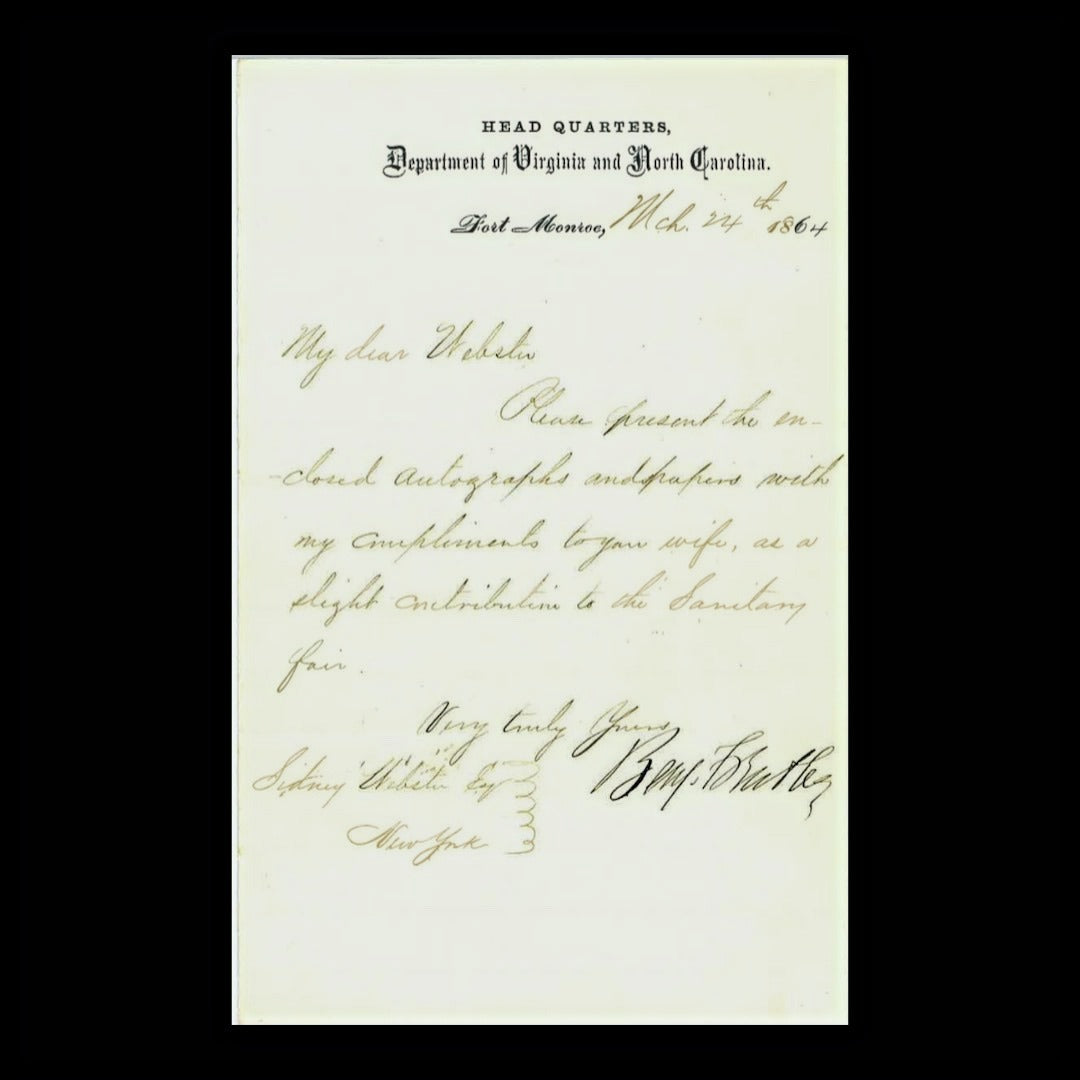 HEAD QUARTERS,
Department of Virginia and North Carolina.
Fort Monroe, Mch. 24th 1864
My dear Webster
Please present the en-
-closed autographs and papers with
my compliments to your wife, as a
slight contribution to the Sanitary
fair.
Very truly Yours
Benj. F Butler
Sidney Webster Esq
New York